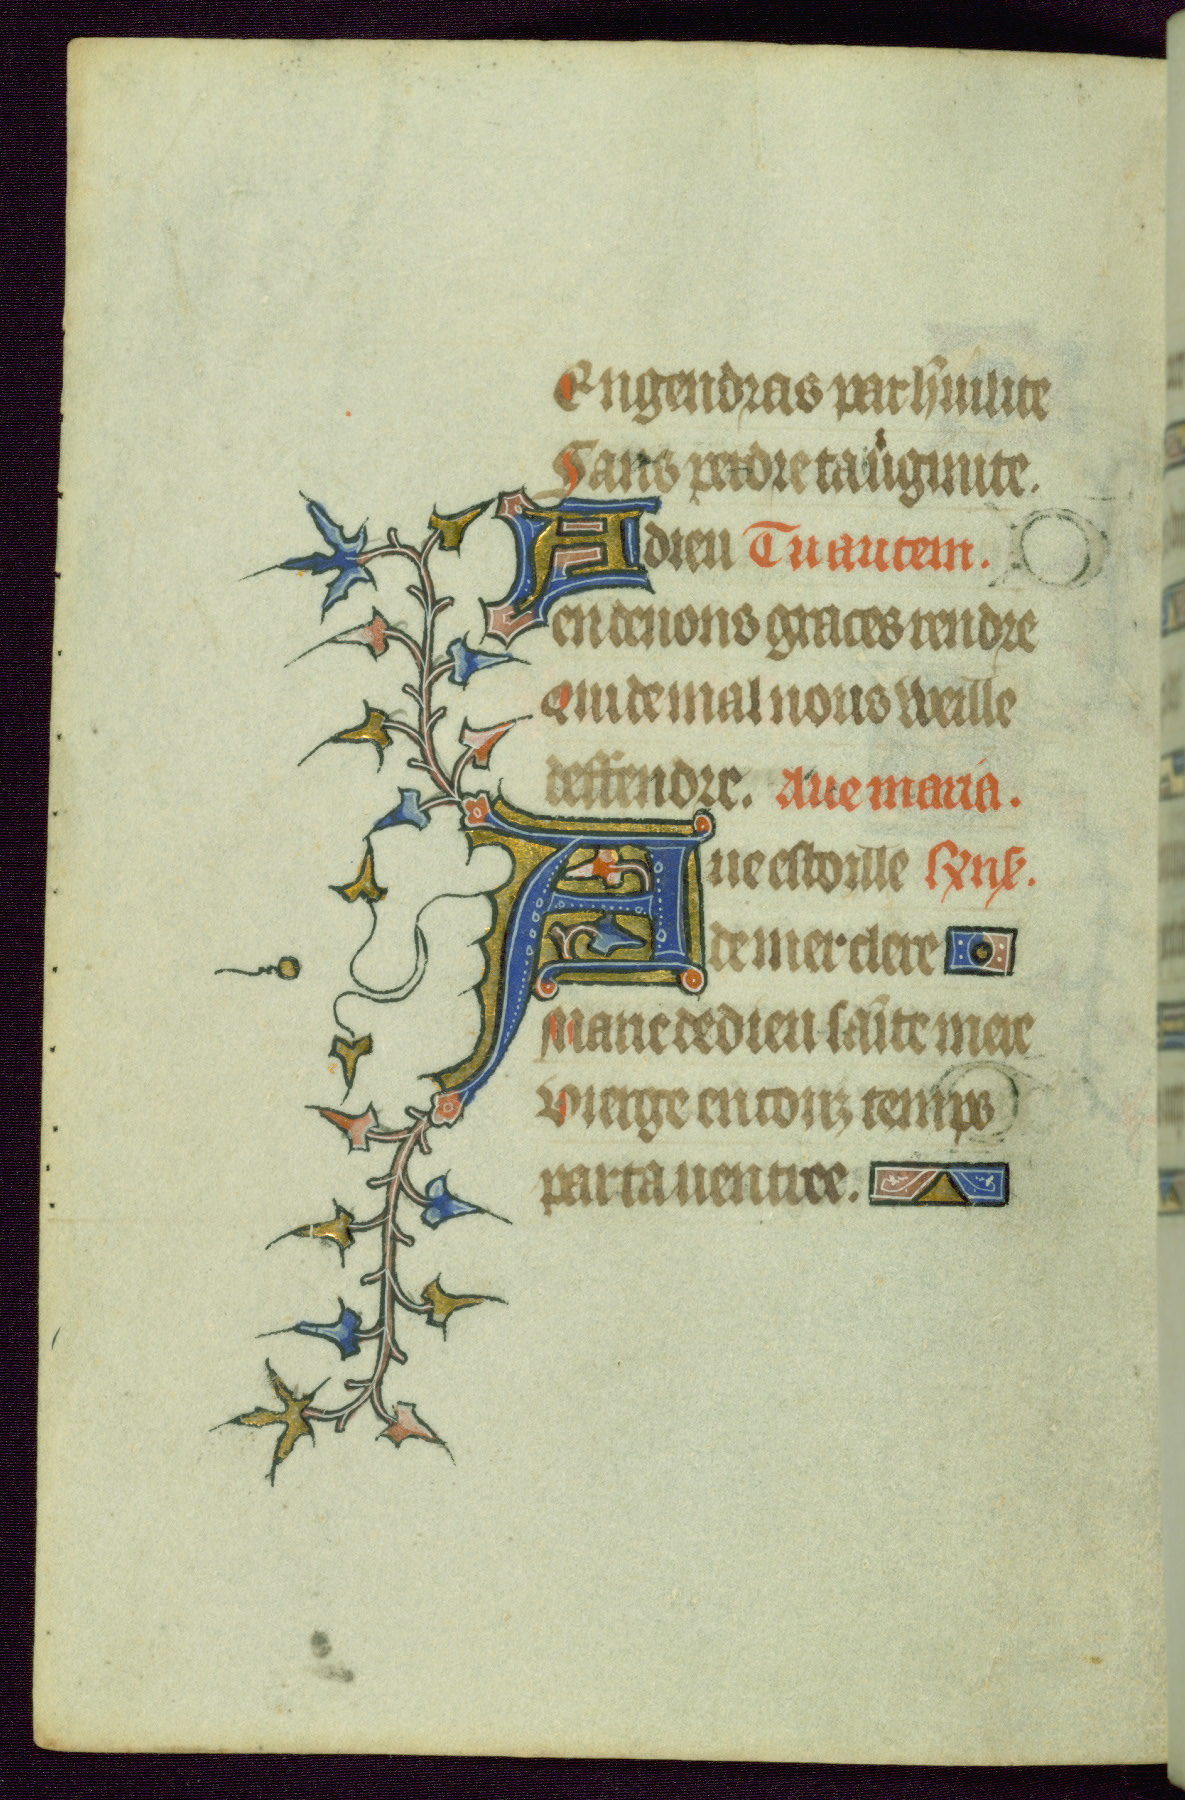 Engendras par humilite
Sans perdre ta virginite.
A dieu Tu autem.
en deuons graces rendre
Qui de mal nous weille
deffendre. Aue maria.
Aue estoille
de mer clere
Mans de dieu sainte mere
Vierge en touz temps
par ta uentree.